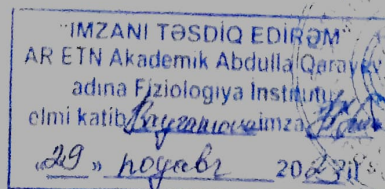 "İMZANI TƏSDİQ EDİRƏM"
AR ETN Akademik Abdulla Qarayev
adına Fiziologiya İnstitutu
elmi katib Bayramova imza
«29» noyabr 2023 il